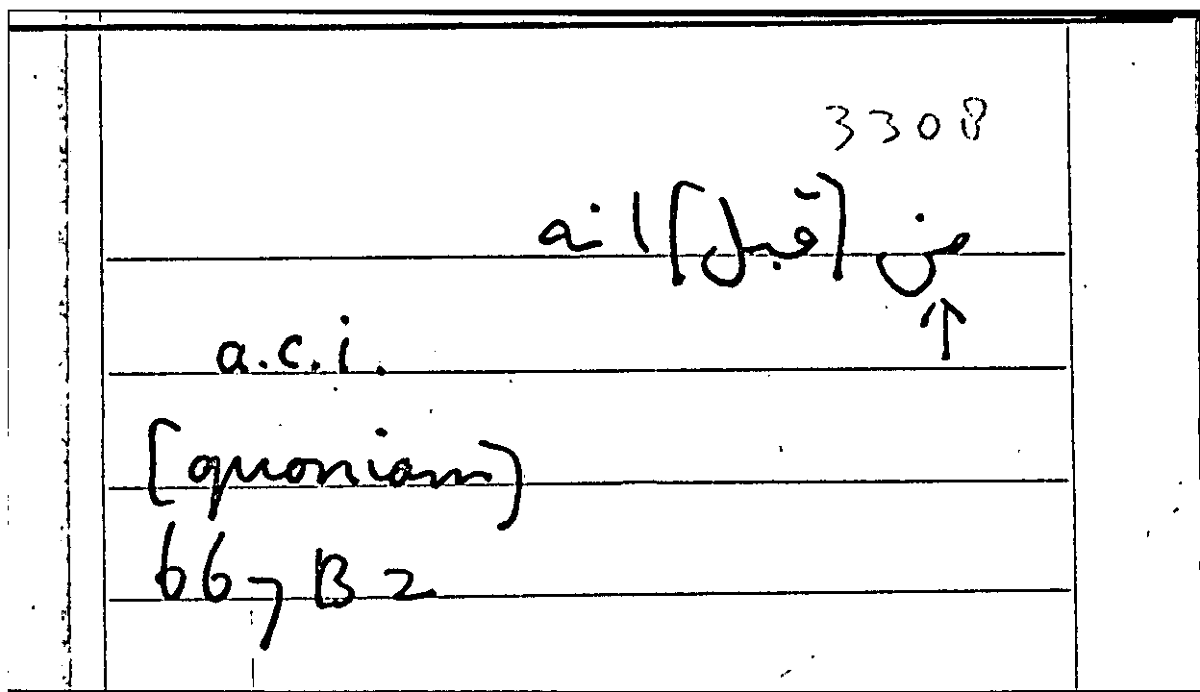 3308
من [قبل] انه
↑
a.c.i.
[quoniam]
667 B 2